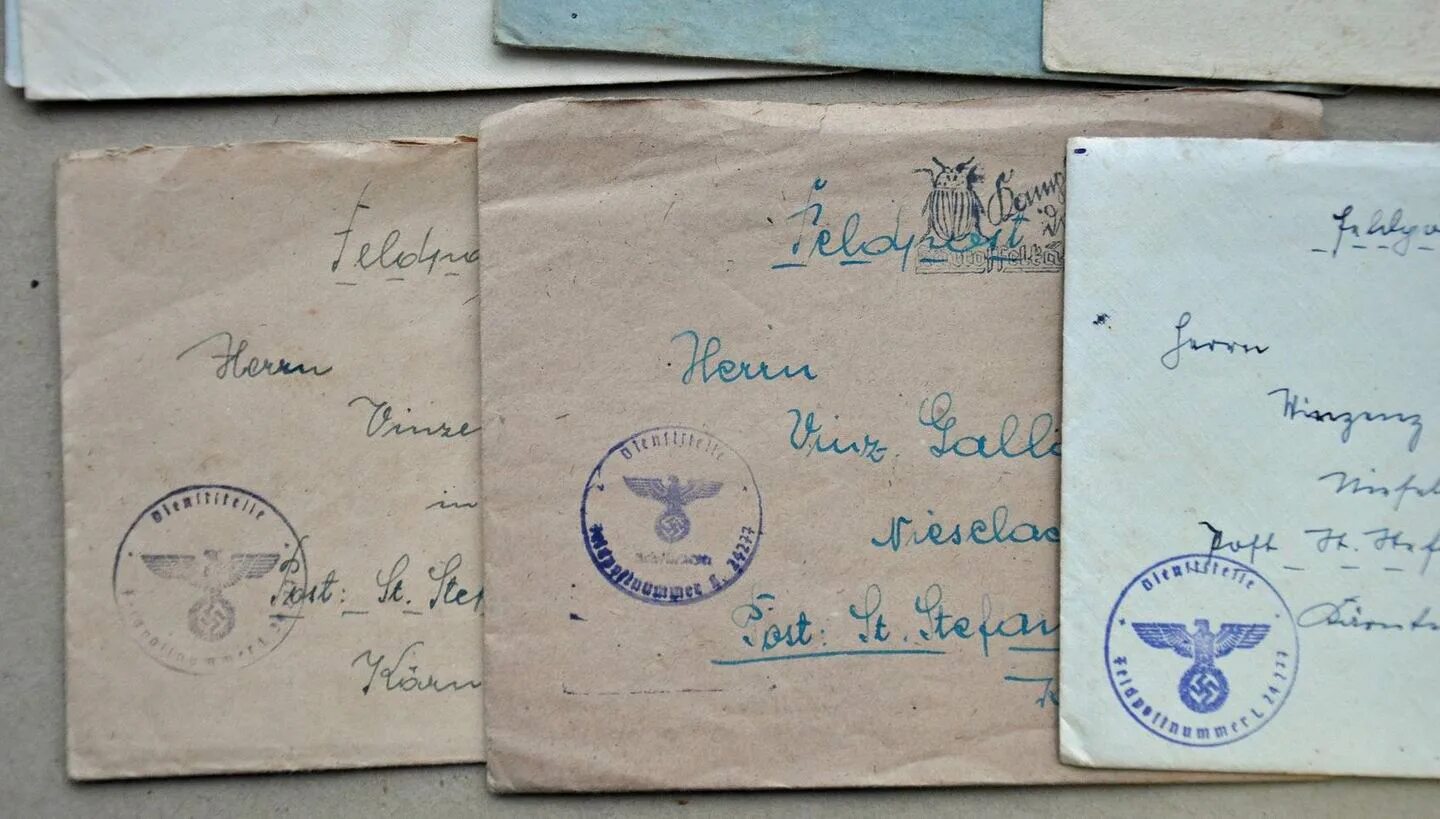 Feldpo
Herrn
Vinze
in
Post: St. Stef
Kärn
Dienststelle
Feldpostnummer L
Feldpost
Kartoffelkä
Herrn
Vinz. Galli
Nieselac
Post: St. Stefan
K
Dienststelle
Feldpostnummer L. 24277
Feldpo
Herrn
Winzenz
Post St. Stef
Kärnt
Dienststelle
Feldpostnummer L 24277